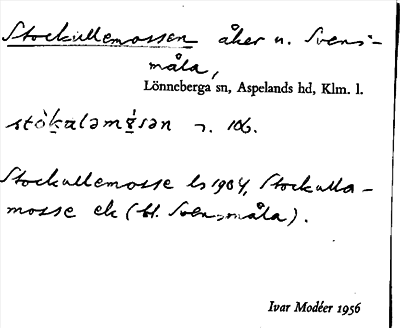 Stockullemossen åker n. Svens-
måla,
Lönneberga sn, Aspelands hd, Klm. l.
stòkaləmósən
Stockullemosse ls 1904, Stockulla-
mosse ek (bl. Svensmåla).
Ivar Modéer 1956